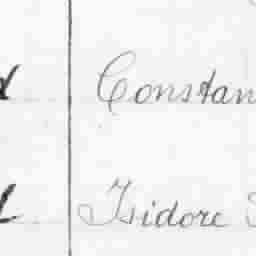 Constan
Isidore